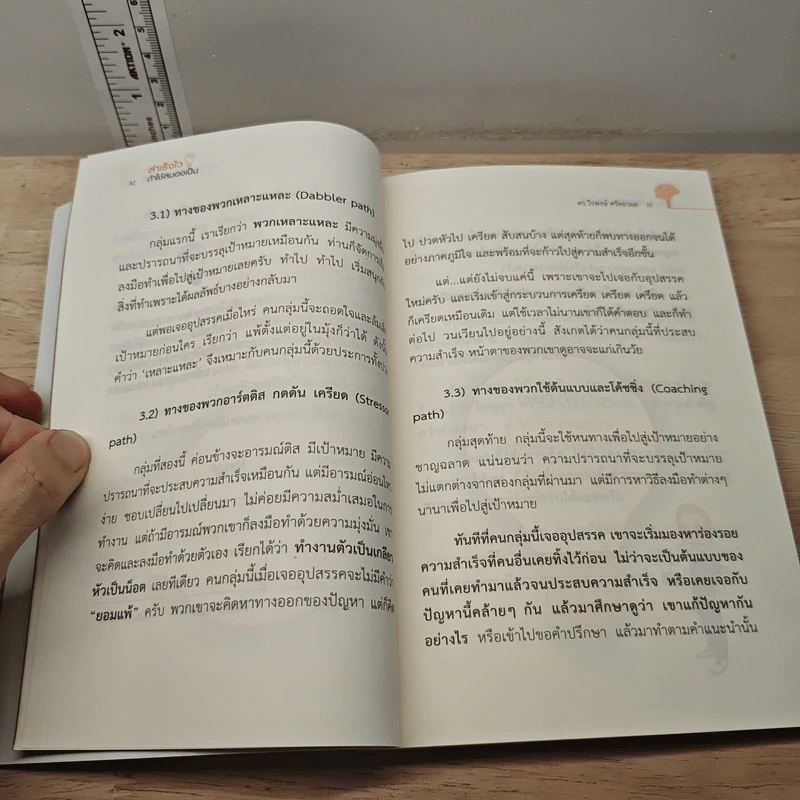 ACTION
inches
สำเร็จไว
ถ้าใช้สมองเป็น
32
3.1) ทางของพวกเหลาะแหละ (Dabbler path)
กลุ่มแรกนี้ เราเรียกว่า พวกเหลาะแหละ มีความมุ่งมั่น
และปรารถนาที่จะบรรลุเป้าหมายเหมือนกัน ท่านก็จัดการ
ลงมือทำเพื่อไปสู่เป้าหมายเลยครับ ทำไป ทำไป เริ่มสนุกกับ
สิ่งที่ทำเพราะได้ผลลัพธ์บางอย่างกลับมา
แต่พอเจออุปสรรคเมื่อไหร่ คนกลุ่มนี้จะถอดใจและ
เป้าหมายก่อนใคร เรียกว่า แพ้ตั้งแต่อยู่ในมุ้งก็ว่าได้ ดังนั้น
คำว่า ‘เหลาะแหละ’ จึงเหมาะกับคนกลุ่มนี้ด้วยประการทั้งปวง
3.2) ทางของพวกอาร์ตติส กดดัน เครียด (Stressor
path)
กลุ่มที่สองนี้ ค่อนข้างจะอารมณ์ติส มีเป้าหมาย มีความ
ปรารถนาที่จะประสบความสำเร็จเหมือนกัน แต่มีอารมณ์อ่อนไหว
ง่าย ชอบเปลี่ยนไปเปลี่ยนมา ไม่ค่อยมีความสม่ำเสมอในการ
ทำงาน แต่ถ้ามีอารมณ์พวกเขาก็ลงมือทำด้วยความมุ่งมั่น เขา
จะคิดและลงมือทำด้วยตัวเอง เรียกได้ว่า ทำงานตัวเป็นเกลียว
หัวเป็นน็อต เลยทีเดียว คนกลุ่มนี้เมื่อเจออุปสรรคจะไม่มีคำว่า
“ยอมแพ้” ครับ พวกเขาจะคิดหาทางออกของปัญหา แต่ก็คิด
33
ไป ปวดหัวไป เครียด สับสนบ้าง แต่สุดท้ายก็พบทางออกจนได้
อย่างภาคภูมิใจ และพร้อมที่จะก้าวไปสู่ความสำเร็จอีกขั้น
แต่...แต่ยังไม่จบแค่นี้ เพราะเขาจะไปเจอกับอุปสรรค
ใหม่ครับ และเริ่มเข้าสู่กระบวนการเครียด เครียด เครียด แล้ว
ก็เครียดเหมือนเดิม แต่ใช้เวลาไม่นานเขาก็ได้คำตอบ และก็ทำ
ต่อไป วนเวียนไปอยู่อย่างนี้ สังเกตได้ว่าคนกลุ่มนี้ที่ประสบ
ความสำเร็จ หน้าตาของพวกเขาดูอาจจะแก่เกินวัย
3.3) ทางของพวกใช้ต้นแบบและโค้ชชิ่ง (Coaching
path)
กลุ่มสุดท้าย กลุ่มนี้จะใช้หนทางเพื่อไปสู่เป้าหมายอย่าง
ชาญฉลาด แน่นอนว่า ความปรารถนาที่จะบรรลุเป้าหมาย
ไม่แตกต่างจากสองกลุ่มที่ผ่านมา แต่มีการหาวิธีลงมือทำต่างๆ
นานาเพื่อไปสู่เป้าหมาย
ทันทีที่คนกลุ่มนี้เจออุปสรรค เขาจะเริ่มมองหาร่องรอย
ความสำเร็จที่คนอื่นเคยทิ้งไว้ก่อน ไม่ว่าจะเป็นต้นแบบของ
คนที่เคยทำมาแล้วจนประสบความสำเร็จ หรือเคยเจอกับ
ปัญหานี้คล้ายๆ กัน แล้วมาศึกษาดูว่า เขาแก้ปัญหากัน
อย่างไร หรือเข้าไปขอคำปรึกษา แล้วมาทำตามคำแนะนำนั้น